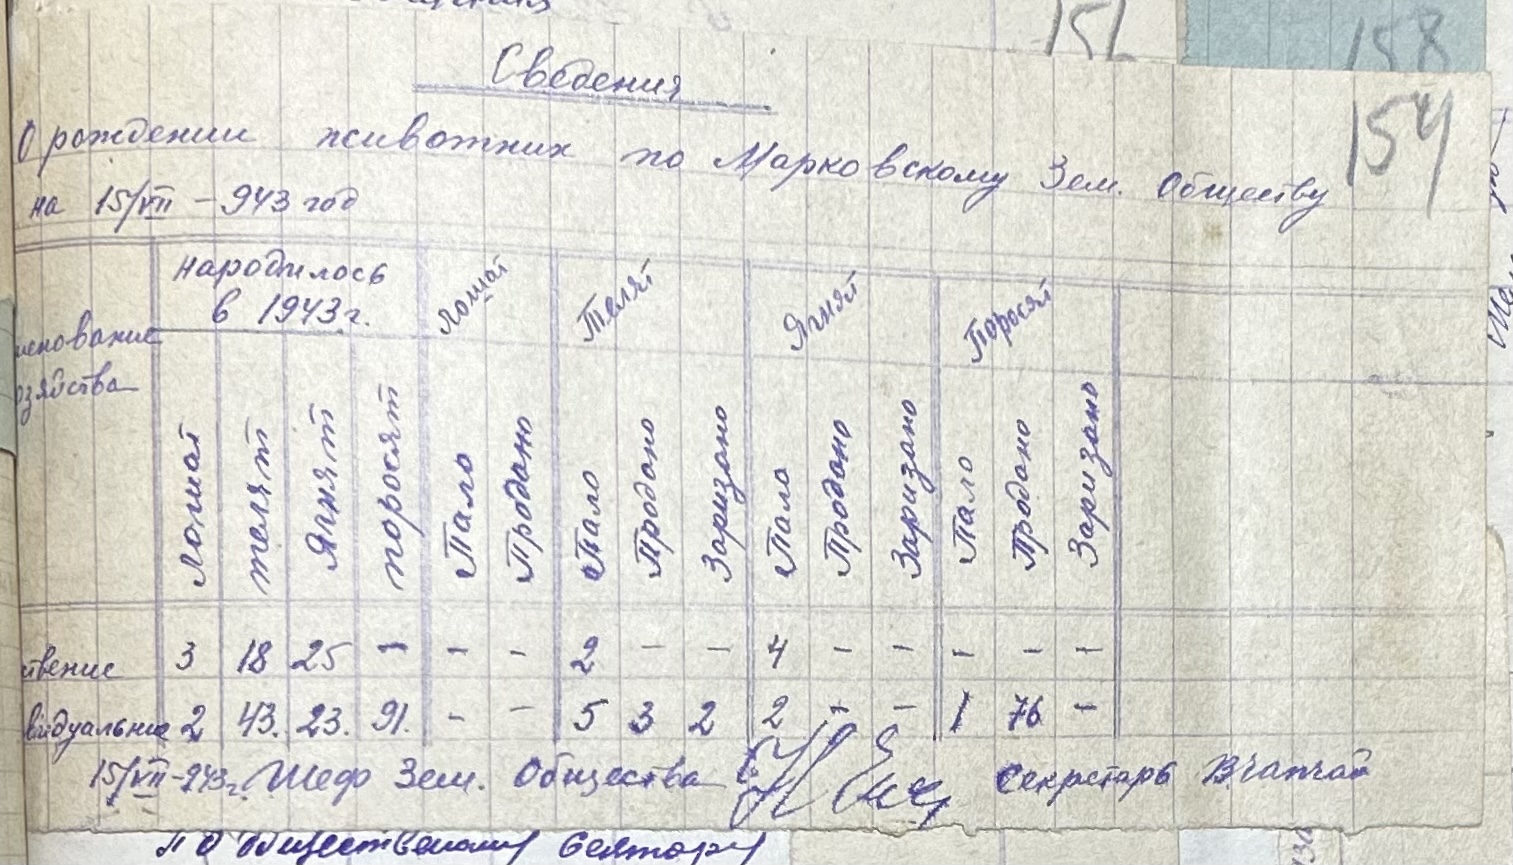 151
158
154
Сведения
О рождении животних по Марковскому Зем. Обществу
на 15/VII – 943 год
народилось
в 1943 г.
лошат
Телят
Ягнят
Поросят
енование
озяйства
Лошат
телят
Ягнят
поросят
Пало
Продано
Пало
Продано
Заризано
Пало
Продано
Заризано
Пало
Продано
Заризано
твение 3 18 25 – – – 2 – – 4 – – – – –
видуальние 2 43. 23. 91. – – 5 3 2 2 – – 1 76 –
15/VII – 943 г. Шеф Зем. Общества Секретарь
по общественному сектору